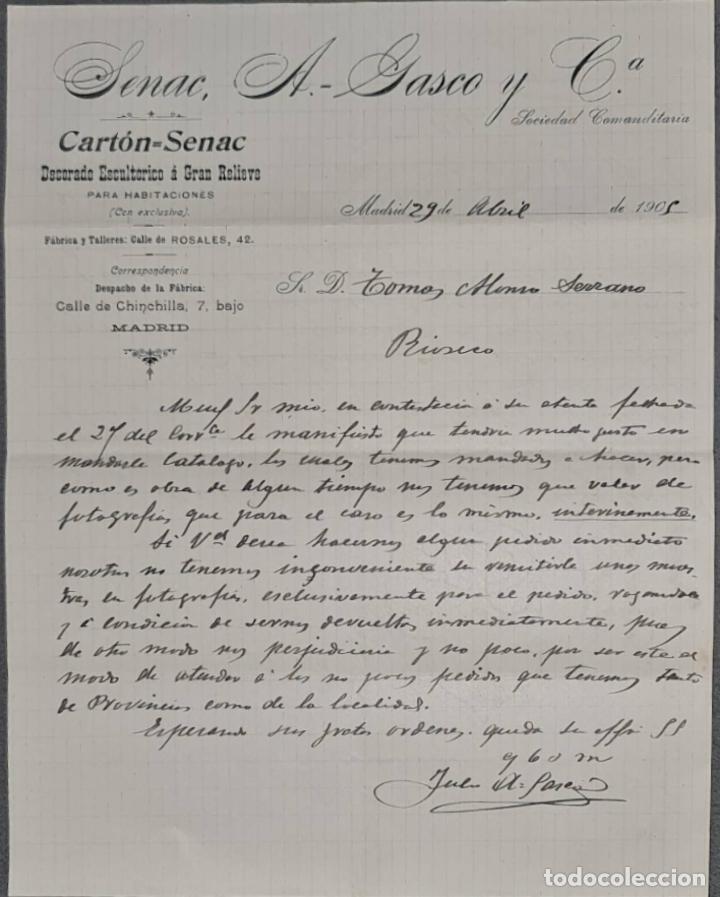 Senac, A.-Gasco y C.ª
Sociedad Comanditaria
Cartón=Senac
Decorado Escultórico á Gran Relieve
PARA HABITACIONES
(Con exclusiva).
Fábrica y Talleres: Calle de ROSALES, 42.
Correspondencia
Despacho de la Fábrica:
Calle de Chinchilla, 7, bajo
MADRID
Madrid 29 de Abril de 1905
Sr. D. Tomas Alonso Serrano
Rioseco
Muy Sr mio, en contestacion á su atenta fechada
el 27 del Corr.te le manifiesto que tendria mucho gusto en
mandarle Catalogo, los cuales tenemos mandados a hacer, pero
como es obra de algun tiempo nos tenemos que valer de
fotografias que para el caso es lo mismo, interinamente.
Si Vd desea hacernos algun pedido inmediato
nosotros no tenemos inconveniente en remitirle unas mues-
tras en fotografia, exclusivamente para el pedido, rogandole
y á condicion de sernos devueltas inmediatamente, pues
de otro modo nos perjudicaria y no poco, por ser este el
modo de atender á los no pocos pedidos que tenemos tanto
de Provincias como de la localidad.
Esperando sus gratas ordenes queda su affmo SS
q b s m
Julio A=Gasco
todocoleccion.net